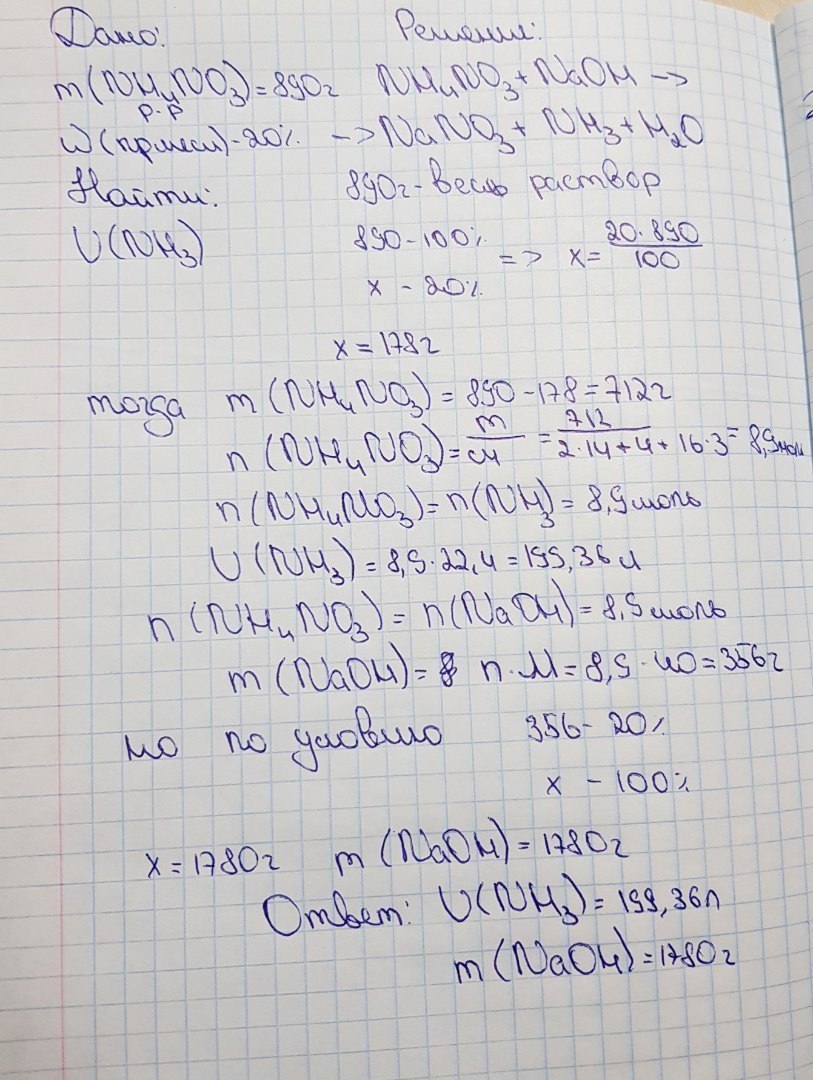 Дано: Решение:
m(NH₄NO₃)=890г NH₄NO₃+NaOH→
р-р
ω(примеси)-20% →NaNO₃+NH₃+H₂O
Найти: 890г-весь раствор
U(NH₃) 890-100% => x= 20·890/100
x - 20%
x=178г
тогда m(NH₄NO₃)=890-178=712г
n(NH₄NO₃)=m/M=712/2·14+4+16·3=8,9моль
n(NH₄NO₃)=n(NH₃)=8,9моль
U(NH₃)=8,9·22,4=199,36л
n(NH₄NO₃)=n(NaOH)=8,9моль
m(NaOH)= n·M=8,9·40=356г
но по условию 356-20%
x - 100%
x=1780г m(NaOH)=1780г
Ответ: U(NH₃)=199,36л
m(NaOH)=1780г